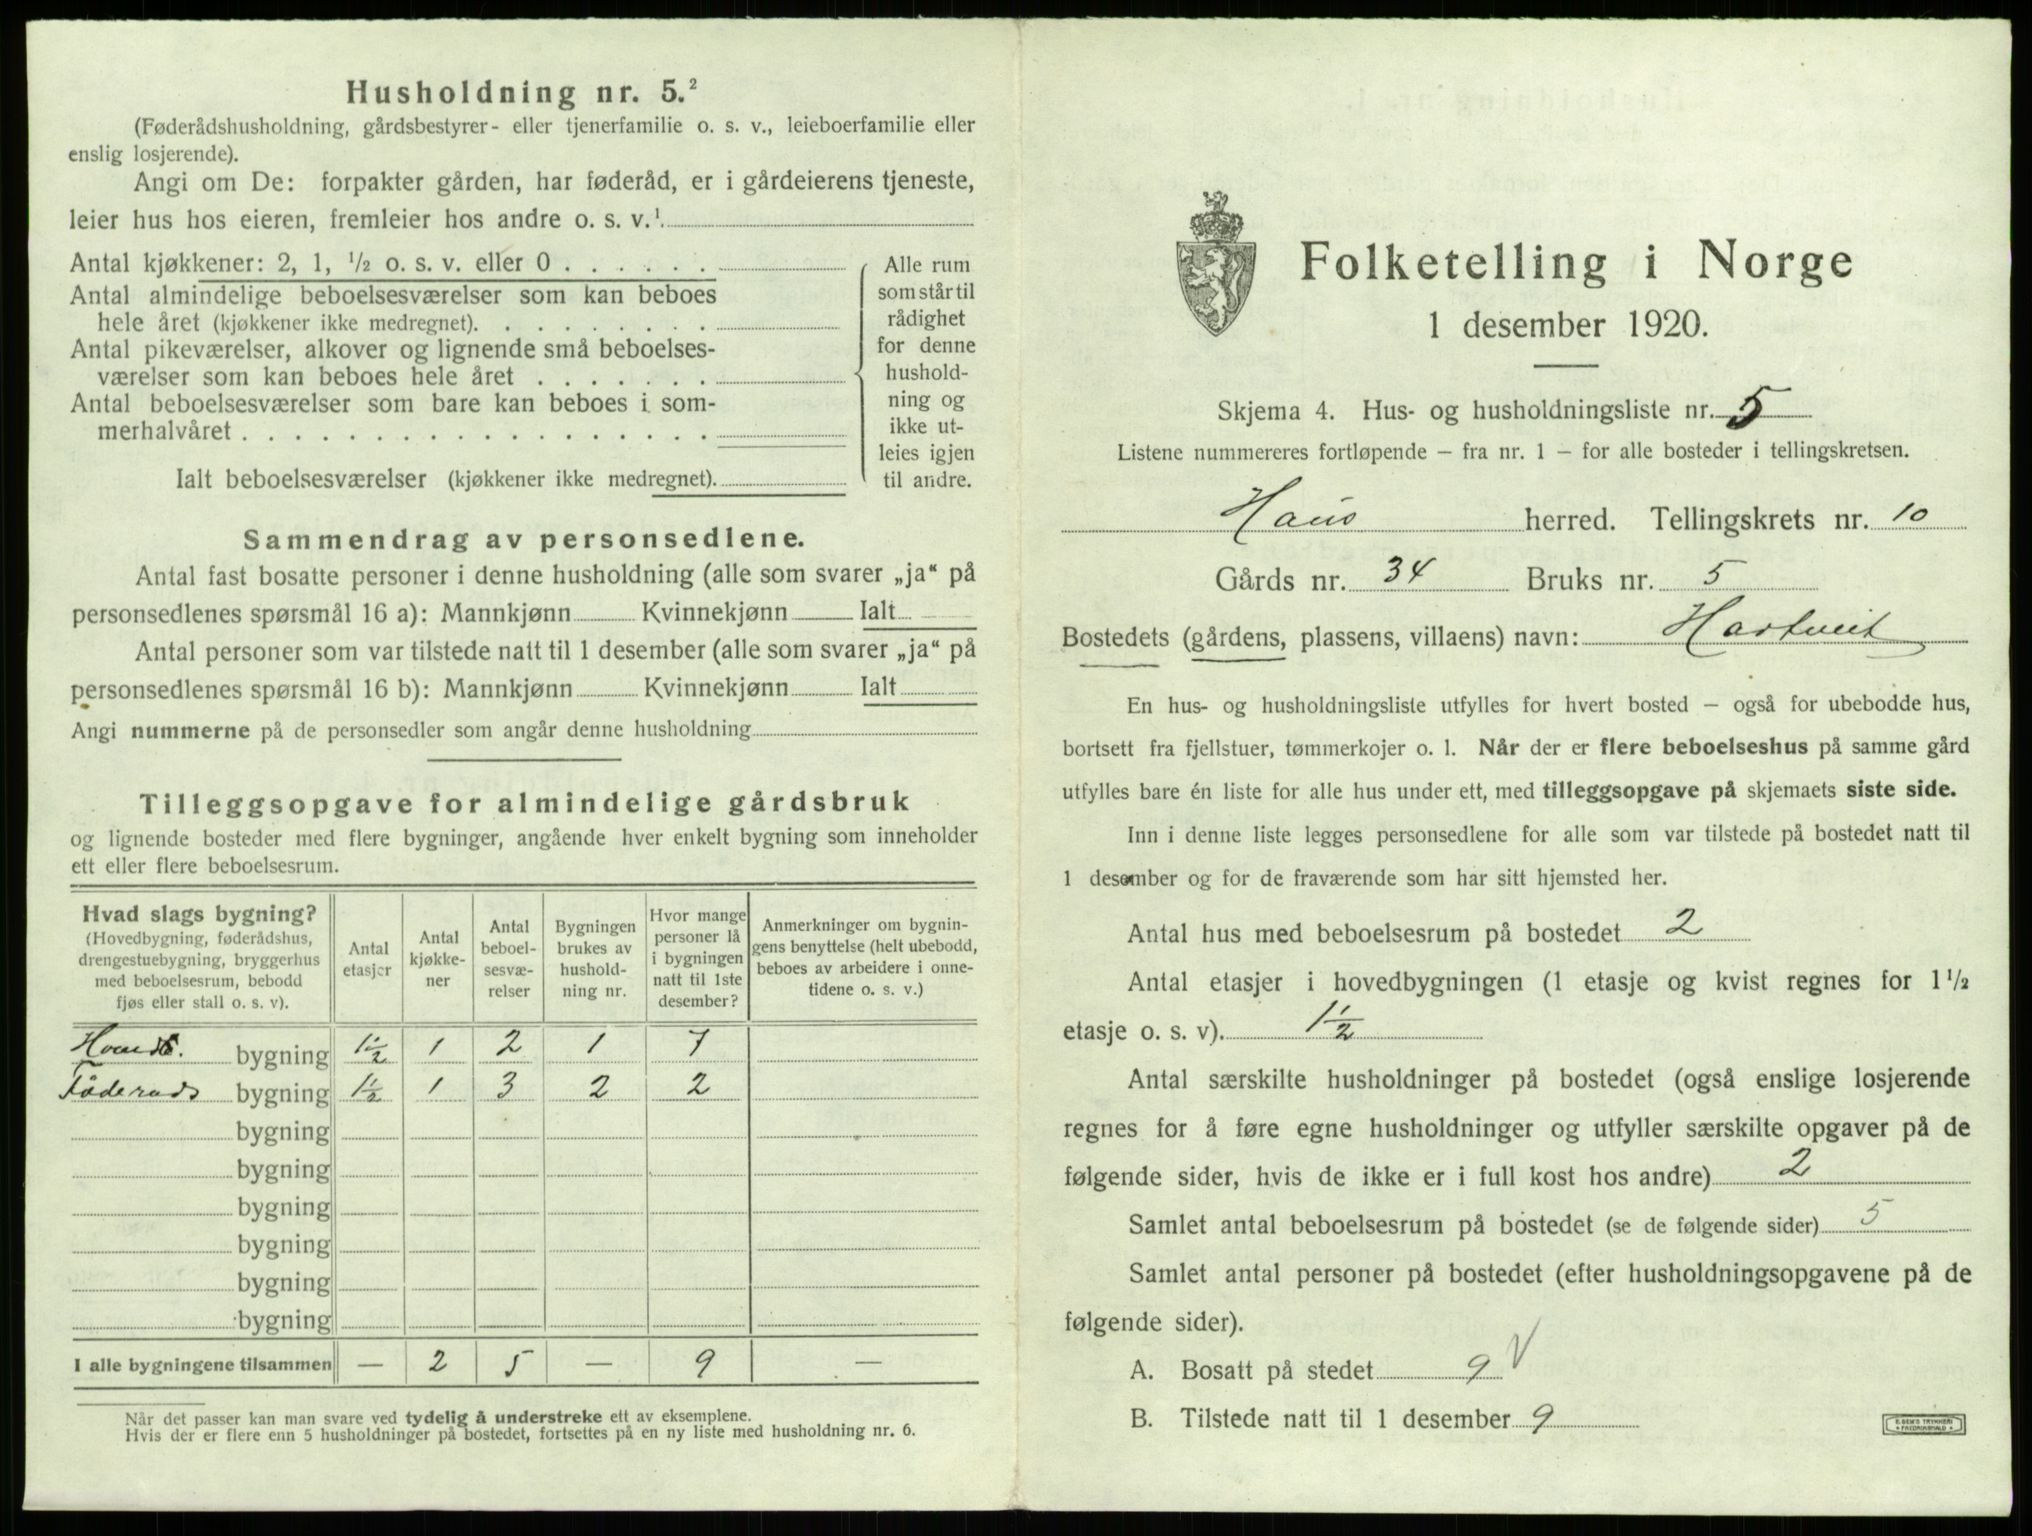 Husholdning nr. 5.²
(Føderådshusholdning, gårdsbestyrer- eller tjenerfamilie o. s. v., leieboerfamilie eller
enslig losjerende).
Angi om De: forpakter gården, har føderåd, er i gårdeierens tjeneste,
leier hus hos eieren, fremleier hos andre o. s. v.¹
Antal kjøkkener: 2, 1, ½ o. s. v. eller 0 . . . . . .
Antal almindelige beboelsesværelser som kan beboes
hele året (kjøkkener ikke medregnet). . . . . . . . .
Antal pikeværelser, alkover og lignende små beboelses-
værelser som kan beboes hele året . . . . . . .
Antal beboelsesværelser som bare kan beboes i som-
merhalvåret . . . . . . . . . . . . . . . . . .
Ialt beboelsesværelser (kjøkkener ikke medregnet).
Alle rum
som står til
rådighet
for denne
hushold-
ning og
ikke ut-
leies igjen
til andre.
Sammendrag av personsedlene.
Antal fast bosatte personer i denne husholdning (alle som svarer „ja“ på
personsedlenes spørsmål 16 a): Mannkjønn Kvinnekjønn Ialt
Antal personer som var tilstede natt til 1 desember (alle som svarer „ja“ på
personsedlenes spørsmål 16 b): Mannkjønn Kvinnekjønn Ialt
Angi nummerne på de personsedler som angår denne husholdning
Tilleggsopgave for almindelige gårdsbruk
og lignende bosteder med flere bygninger, angående hver enkelt bygning som inneholder
ett eller flere beboelsesrum.
Hvad slags bygning?
(Hovedbygning, føderådshus,
drengestuebygning, bryggerhus
med beboelsesrum, bebodd
fjøs eller stall o. s. v).
Antal
etasjer
Antal
kjøkke-
ner
Antal
beboel-
sesvæ-
relser
Bygningen
brukes av
hushold-
ning nr.
Hvor mange
personer lå
i bygningen
natt til 1ste
desember?
Anmerkninger om bygnin-
gens benyttelse (helt ubebodd,
beboes av arbeidere i onne-
tidene o. s. v.)
bygning 1½ 1 2 1 7
Føderads bygning 1½ 1 3 2 2
bygning
bygning
bygning
bygning
bygning
bygning
I alle bygningene tilsammen — 2 5 — 9 —
Når det passer kan man svare ved tydelig å understreke ett av eksemplene.
Hvis der er flere enn 5 husholdninger på bostedet, fortsettes på en ny liste med husholdning nr. 6.
Folketelling i Norge
1 desember 1920.
Skjema 4. Hus- og husholdningsliste nr. 5
Listene nummereres fortløpende — fra nr. 1 — for alle bosteder i tellingskretsen.
Haus herred. Tellingskrets nr. 10
Gårds nr. 34 Bruks nr. 5
Bostedets (gårdens, plassens, villaens) navn: Hartveit
En hus- og husholdningsliste utfylles for hvert bosted — også for ubebodde hus,
bortsett fra fjellstuer, tømmerkojer o. l. Når der er flere beboelseshus på samme gård
utfylles bare én liste for alle hus under ett, med tilleggsopgave på skjemaets siste side.
Inn i denne liste legges personsedlene for alle som var tilstede på bostedet natt til
1 desember og for de fraværende som har sitt hjemsted her.
Antal hus med beboelsesrum på bostedet 2
Antal etasjer i hovedbygningen (1 etasje og kvist regnes for 1½
etasje o. s. v). 1½
Antal særskilte husholdninger på bostedet (også enslige losjerende
regnes for å føre egne husholdninger og utfyller særskilte opgaver på de
følgende sider, hvis de ikke er i full kost hos andre) 2
Samlet antal beboelsesrum på bostedet (se de følgende sider) 5
Samlet antal personer på bostedet (efter husholdningsopgavene på de
følgende sider).
A. Bosatt på stedet 9 V
B. Tilstede natt til 1 desember 9